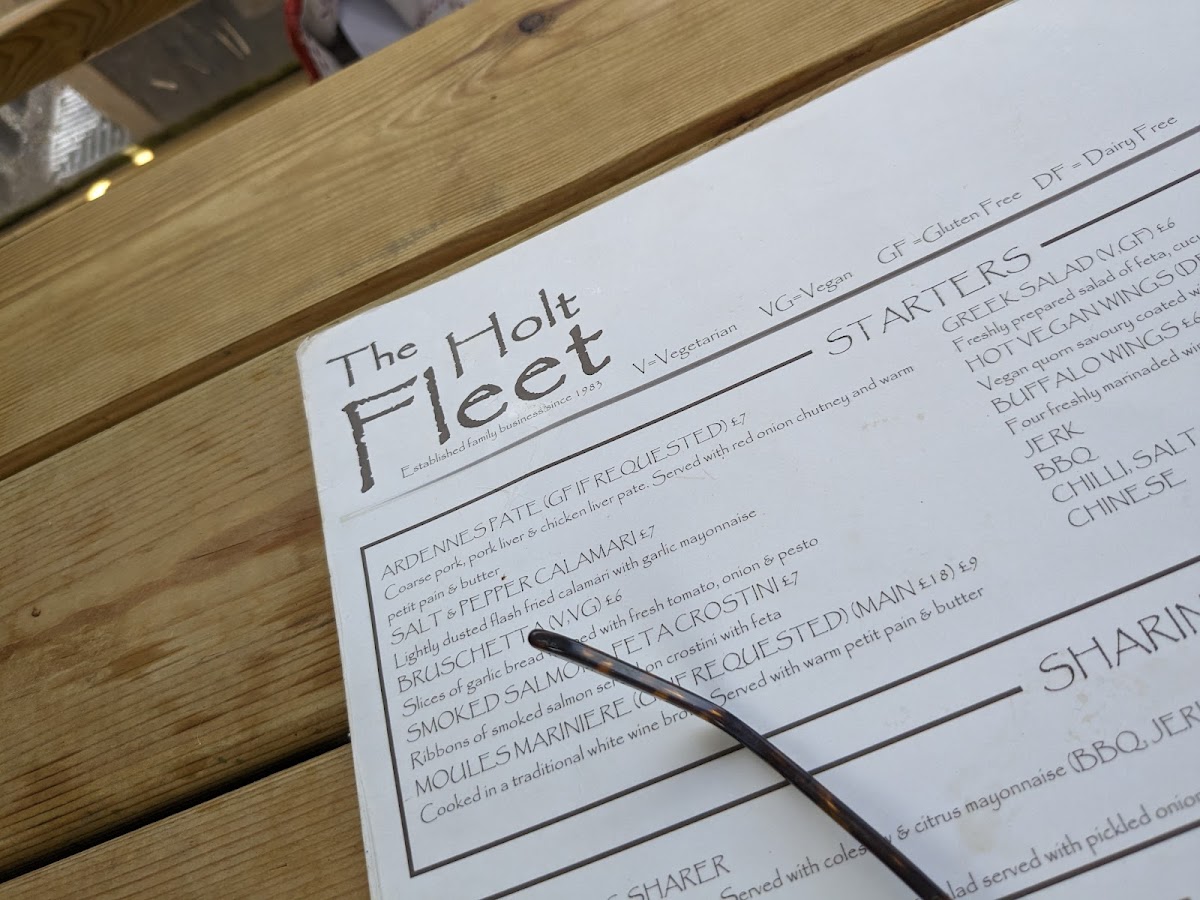 The Holt
Fleet
Established family business since 1983
V=Vegetarian VG=Vegan GF =Gluten Free DF = Dairy Free
STARTERS
ARDENNES PATE (GF IF REQUESTED) £7
Coarse pork, pork liver & chicken liver pate. Served with red onion chutney and warm
petit pain & butter
SALT & PEPPER CALAMARI £7
Lightly dusted flash fried calamari with garlic mayonnaise
BRUSCHETTA (V,VG) £6
Slices of garlic bread with fresh tomato, onion & pesto
SMOKED SALMON FETA CROSTINI £7
Ribbons of smoked salmon on crostini with feta
MOULES MARINIERE (GF IF REQUESTED) (MAIN £18) £9
Cooked in a traditional white wine Served with warm petit pain & butter
GREEK SALAD (V,GF) £6
Freshly prepared salad of feta,
HOT VEGAN WINGS
Vegan quorn savoury coated
BUFFALO WINGS £6
Four freshly marinaded
JERK
BBQ
CHILLI, SALT
CHINESE
SHARER
Served with & citrus mayonnaise (BBQ,
served with pickled